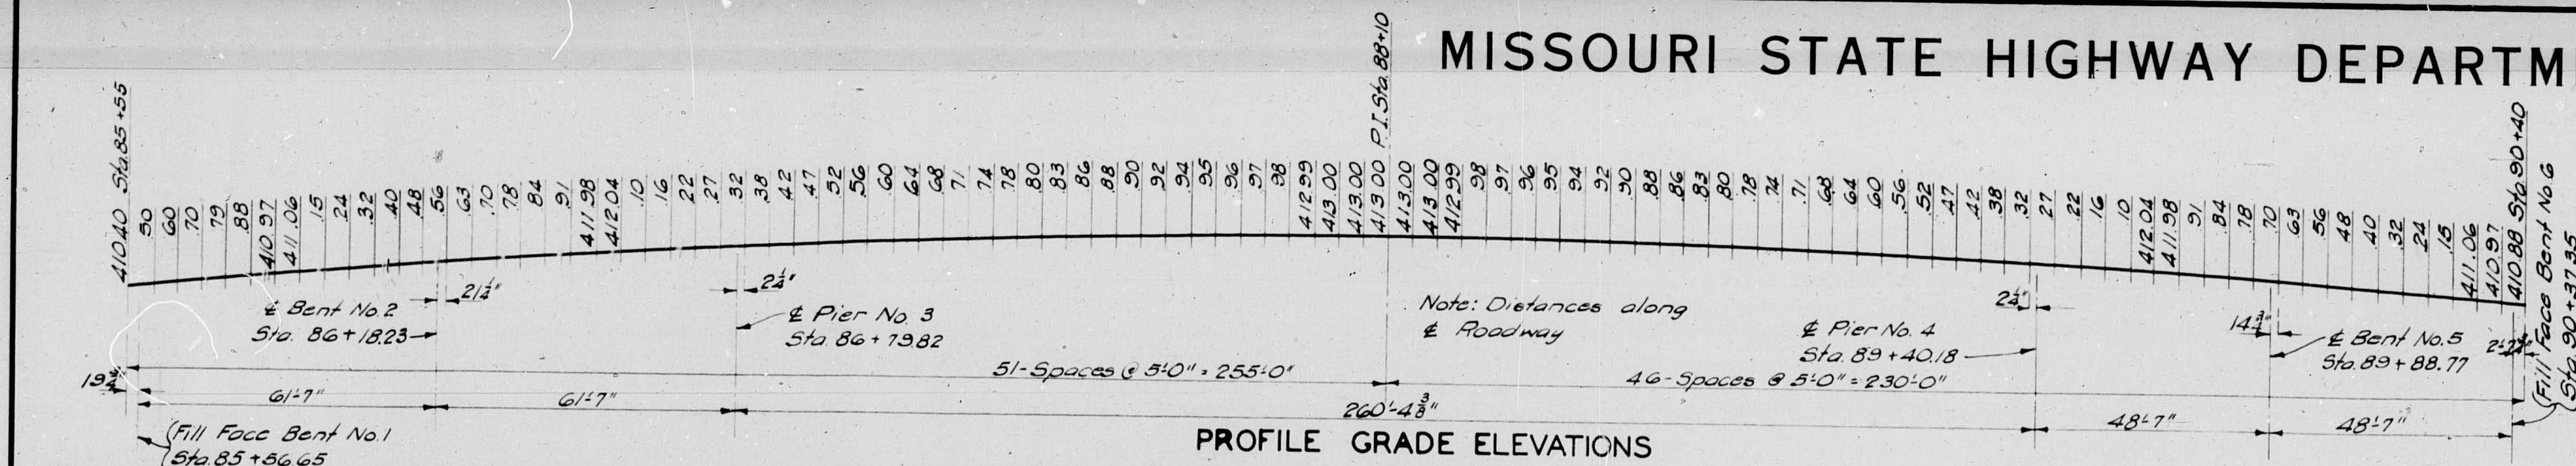 MISSOURI STATE HIGHWAY DEPARTM
410.40 Sta. 85+55
.50
.60
.70
.79
.88
410.97
411.06
.15
.24
.32
.40
.48
.56
.63
.70
.78
.84
.91
411.98
412.04
.10
.16
.22
.27
.32
.38
.42
.47
.52
.56
.60
.64
.68
.71
.74
.78
.80
.83
.86
.88
.90
.92
.94
.95
.96
.97
.98
412.99
413.00
413.00
413.00 P.I. Sta. 88+10
413.00
413.00
412.99
.98
.97
.96
.95
.94
.92
.90
.88
.86
.83
.80
.78
.74
.71
.68
.64
.60
.56
.52
.47
.42
.38
.32
.27
.22
.16
.10
412.04
411.98
.91
.84
.78
.70
.63
.56
.48
.40
.32
.24
.15
411.06
410.97
410.88 Sta. 90+40
(Fill Face Bent No. 6
Sta. 90+37.35
℄ Bent No. 2
Sta. 86+18.23
21¼"
2¼"
℄ Pier No. 3
Sta. 86+79.82
Note: Distances along
℄ Roadway
2¼"
℄ Pier No. 4
Sta. 89+40.18
14¾"
℄ Bent No. 5
Sta. 89+88.77
19¾"
51-Spaces @ 5'-0" = 255'-0"
46-Spaces @ 5'-0" = 230'-0"
61'-7"
61'-7"
260'-4⅜"
48'-7"
48'-7"
(Fill Face Bent No. 1
Sta. 85+56.65
PROFILE GRADE ELEVATIONS